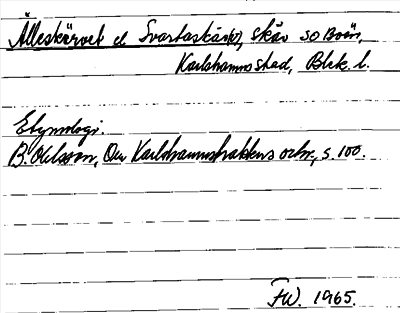 Älleskärvet el Svartaskärv, skär SO Boön,
Karlshamns stad, Blek. l.
Etymologi.
B. Ohlsson, Om Karlshamnstraktens ortn., s. 100.
FW. 1965.